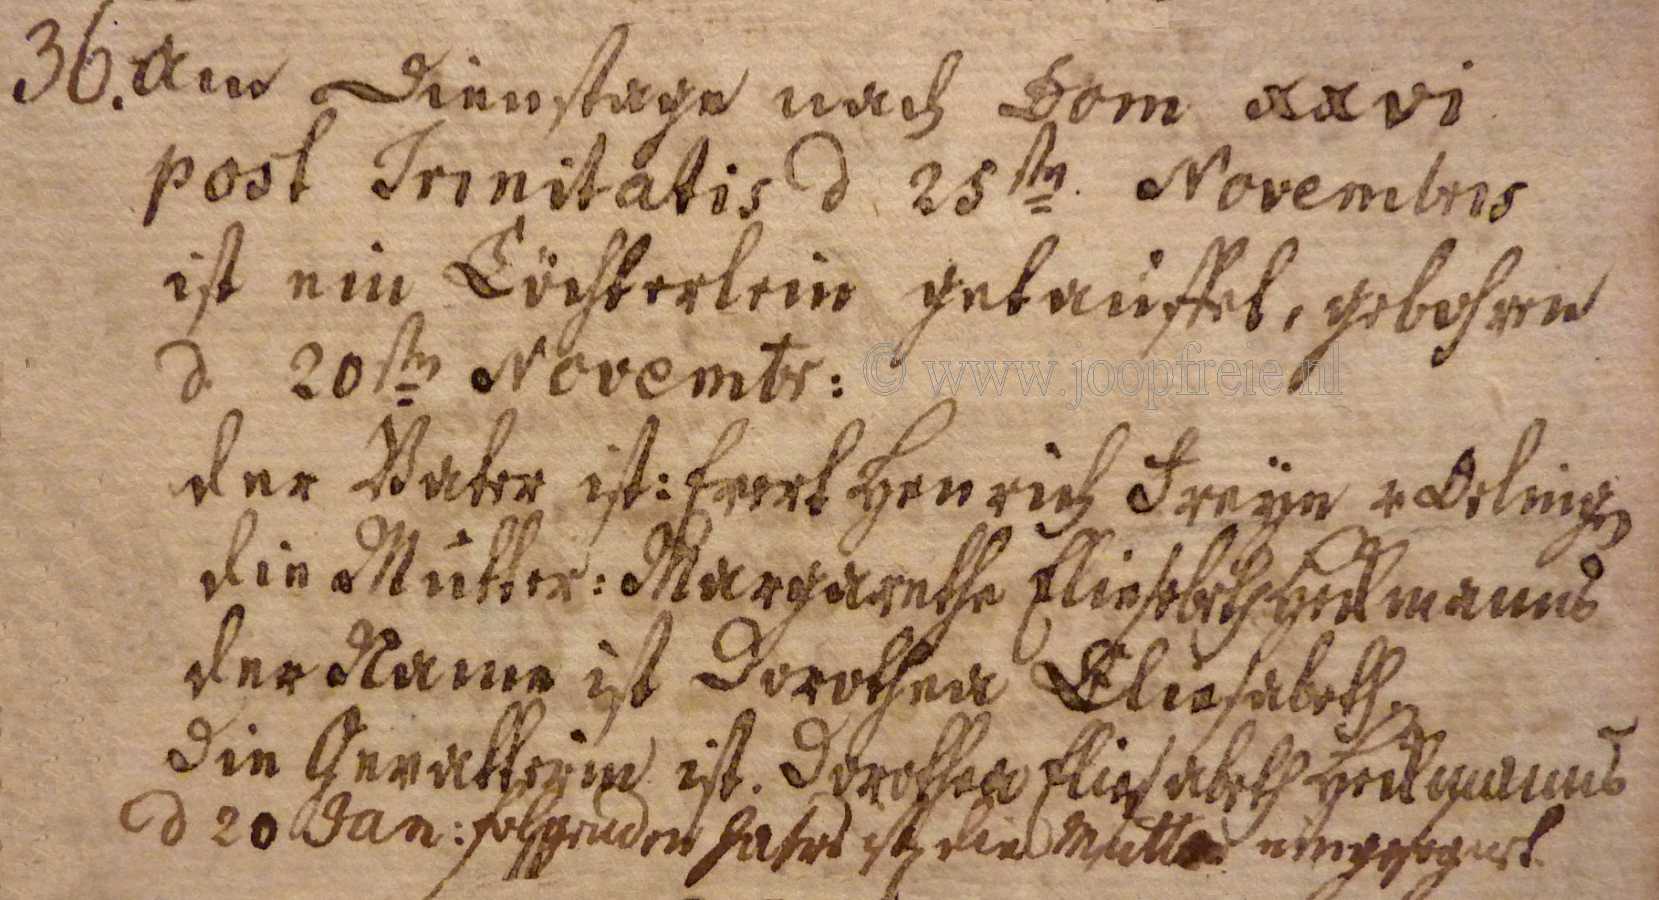 36. Am Dienstage nach Dom xxvi
post Trinitatis d 25stn Novembris
ist ein Töchterlein getauffet, gebohren
d. 20stn Novembr:
© www.joopfreie.nl
der Vater ist: Evert Henrich Freÿe v Oeling
die Mutter: Margarethe Eliesabeth Heilmanns
der Name ist Dorothea Eliesabeth
Die Gevatterin ist. Dorothea Eliesabeth Heilmanns
d 20 Jan: folgenden Jahrs ist die Mutter eingesegnet.